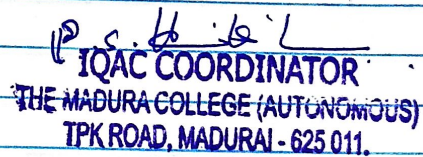 IQAC COORDINATOR
THE MADURA COLLEGE (AUTONOMOUS)
TPK ROAD, MADURAI - 625 011.